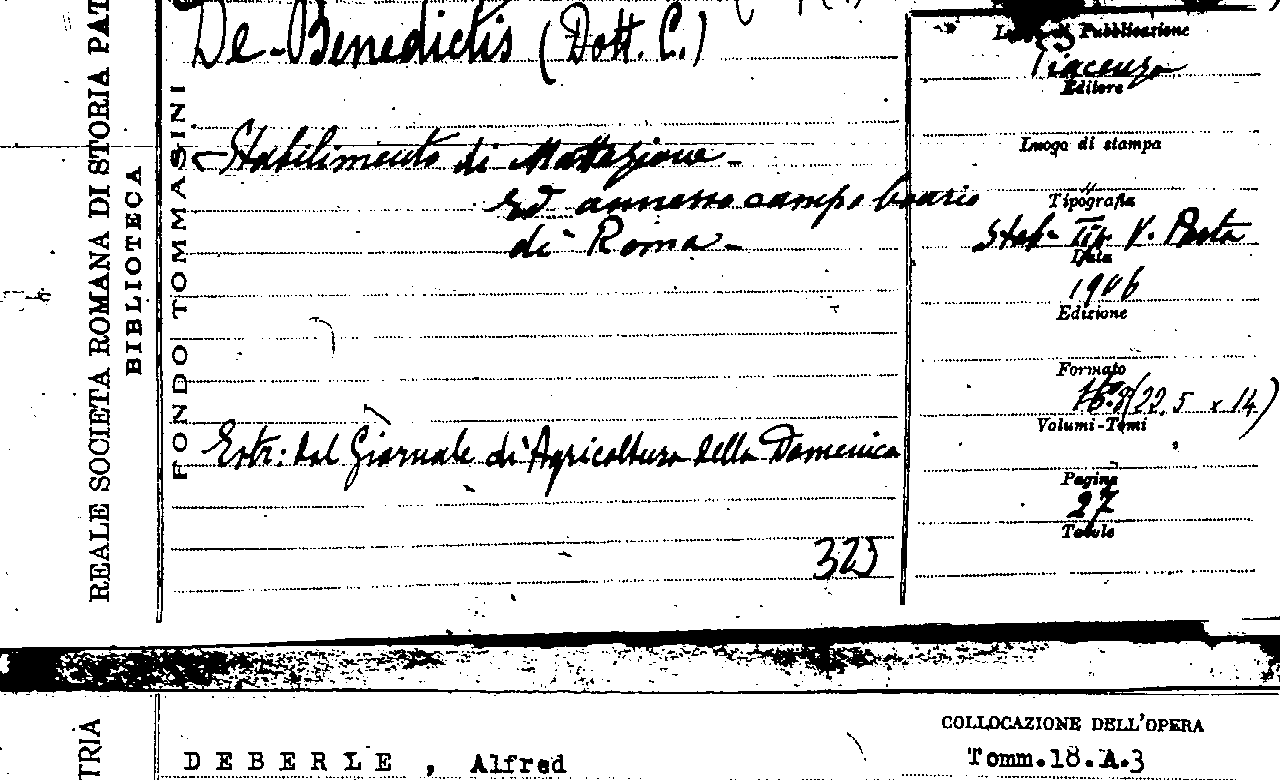 REALE SOCIETA ROMANA DI STORIA PAT
BIBLIOTECA
FONDO TOMMASINI
De-Benedictis (Dott. C.)
Stabilimento di Mattazione
ed annesso campo boario
di Roma
Estr: dal Giornale di Agricoltura della Domenica
325
Luogo di Pubblicazione
Piacenza
Editore
Luogo di stampa
Tipografia
Stab. Tip. V. Porta
Data
1906
Edizione
Formato
(22.5 x 14)
Volumi-Tomi
Pagine
27
Tavole
TRIA
DEBERLE, Alfred
COLLOCAZIONE DELL'OPERA
Tomm.18.A.3